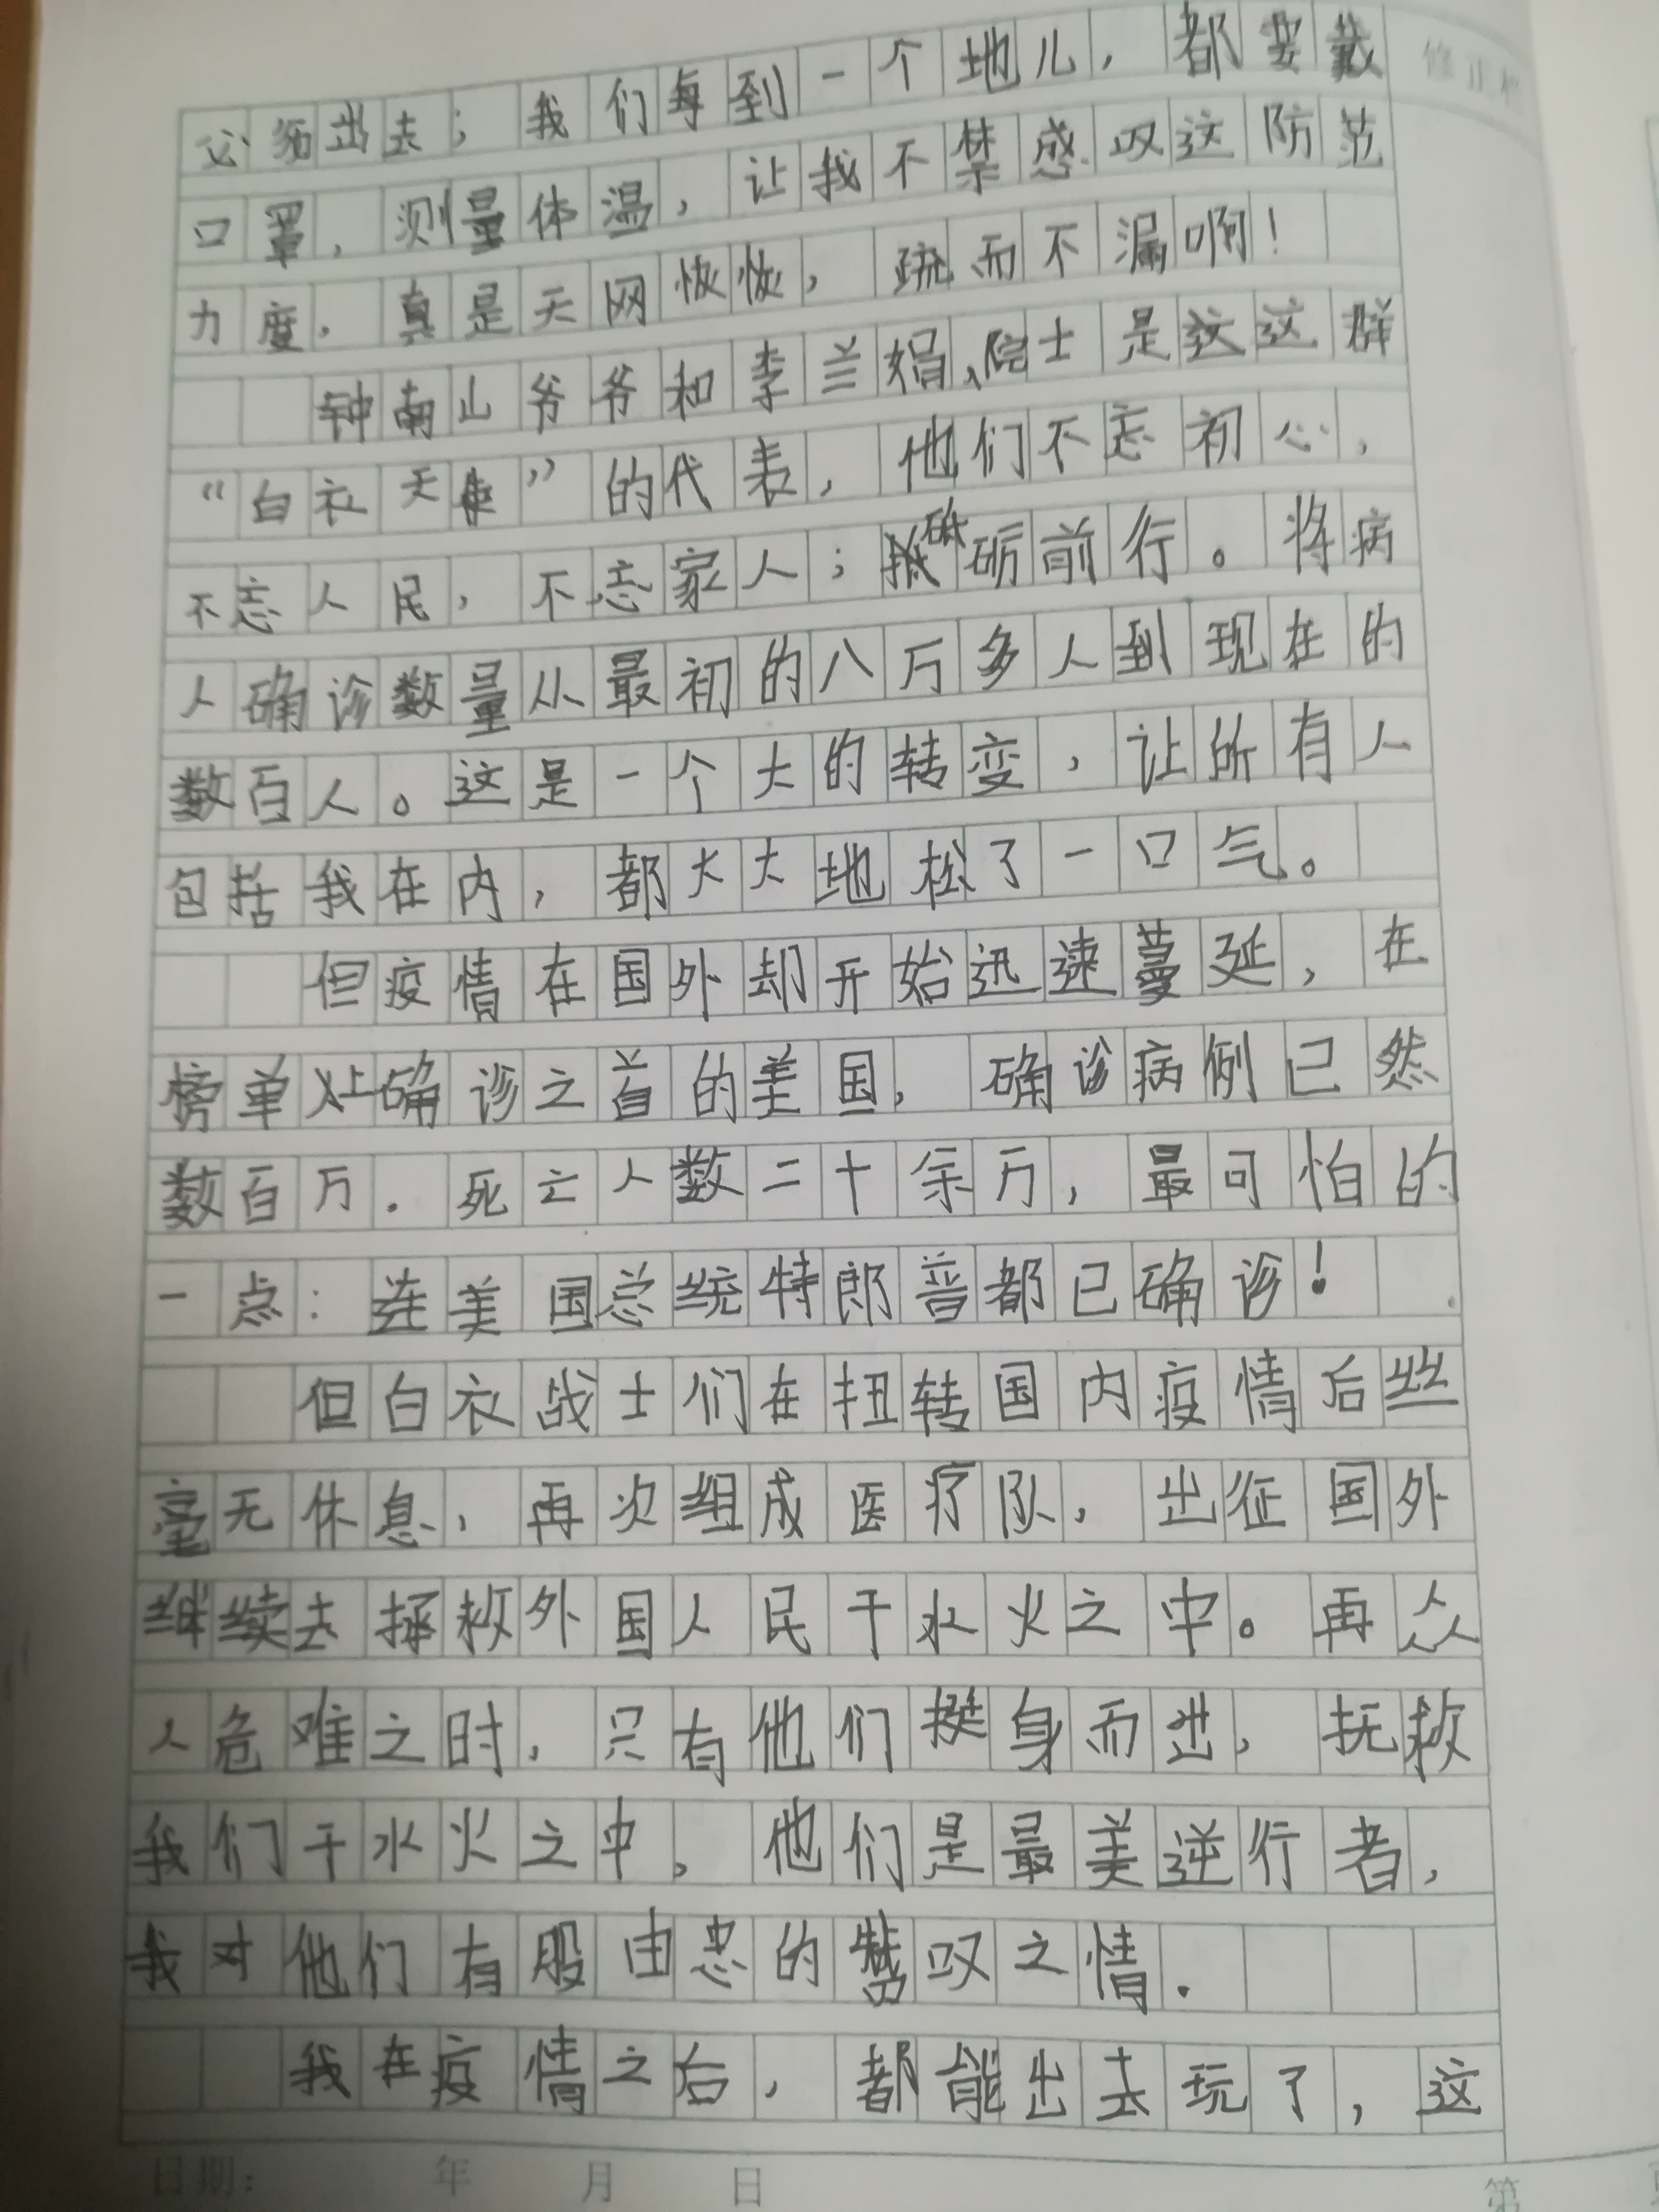 必须出去；我们每到一个地儿，都要戴
修正栏
口罩，测量体温，让我不禁感叹这防范
力度，真是天网恢恢，疏而不漏啊！
钟南山爷爷和李兰娟院士是这这群
“白衣天使”的代表，他们不忘初心，
不忘人民，不忘家人；砥砺前行。将病
人确诊数量从最初的八万多人到现在的
数百人。这是一个大的转变，让所有人
包括我在内，都大大地松了一口气。
但疫情在国外却开始迅速蔓延，在
榜单上确诊之首的美国，确诊病例已然
数百万．死亡人数二十余万，最可怕的
一点：连美国总统特郎普都已确诊！
但白衣战士们在扭转国内疫情后丝
毫无休息，再次组成医疗队，出征国外
继续去拯救外国人民于水火之中。再众
人危难之时，只有他们挺身而出，抚救
我们于水火之中，他们是最美逆行者，
我对他们有股由忠的赞叹之情．
我在疫情之后，都能出去玩了，这
日期： 年 月 日
第